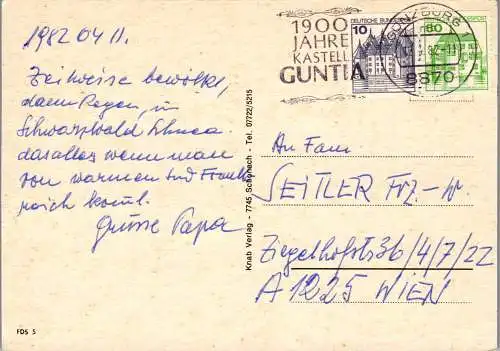 1982 04 11.
Zeitweise bewölkt,
dann Regen, im
Schwarzwald Schnee.
das alles wenn man
von warmen Süd Frank
reich komt.
Grüsse Papa
1900
JAHRE
KASTELL
GUNTIA
DEUTSCHE BUNDESPOST
10
80
GÜNZBURG
8870
Knab Verlag - 7745 Schonach - Tel. 07722/5215
An Fam.
SEITLER Frz.-W.
Ziegelhofstr 36/4/7/22
A 1225 WIEN
FDS 5